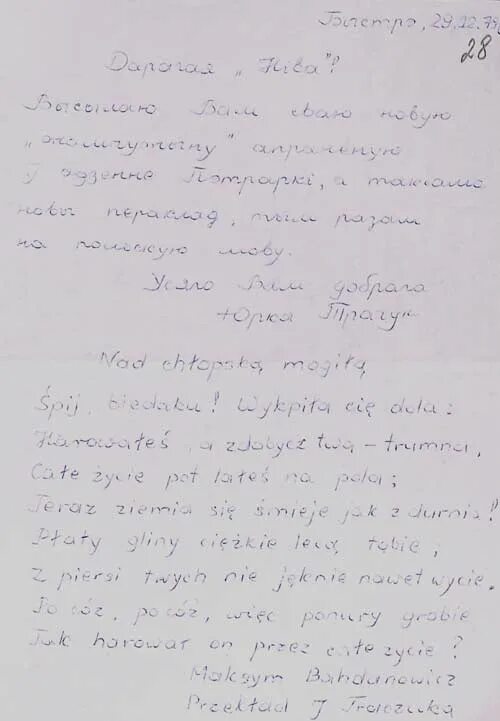 Быстрэ, 29.12.79
28
Дарагая „Ніва"!
Высылаю Вам сваю новую
апраненую
ў адзенне Петраркі, а таксама
новы пераклад, тым разам
на польскую мову.
Усяго Вам добрага
Юрка Трачук
Nad chłopską mogiłą
Śpij, biedaku! Wykpiła cię dola:
Harowałeś, a zdobycz twą – trumna,
Całe życie pot lałeś na pola;
Teraz ziemia się śmieje jak z durnia!
Płaty gliny ciężkie lecą tobie,
Z piersi twych nie jęknie nawet wycie.
Po cóż, po cóż, więc ponury grobie
Tak harował on przez całe życie?
Maksym Bahdanowicz
Przekład J Traczuka